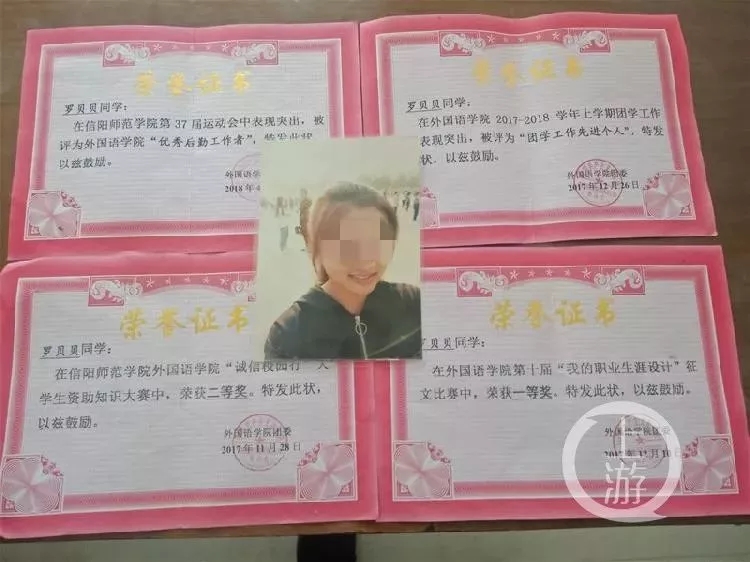 荣誉证书
罗贝贝同学:
在信阳师范学院第37届运动会中表现突出,被
评为外国语学院“优秀后勤工作者”,特发此状,
以兹鼓励。
外国语学院
2018年4
荣誉证书
罗贝贝同学:
在外国语学院2017-2018学年上学期团学工作
表现突出,被评为“团学工作先进个人”,特发
状,以兹鼓励。
外国语学院团委
2017年12月26日
荣誉证书
罗贝贝同学:
在信阳师范学院外国语学院“诚信校园行”大
学生资助知识大赛中,荣获二等奖。特发此状,
以兹鼓励。
外国语学院团委
2017年11月28日
荣誉证书
罗贝贝同学:
在外国语学院第十届“我的职业生涯设计”征
文比赛中,荣获一等奖。特发此状,以兹鼓励。
外国语学院团委
上游